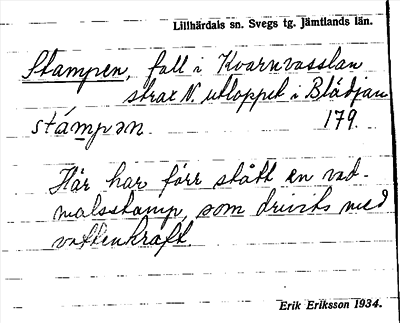 Lillhärdals sn. Svegs tg. Jämtlands län.
Stampen, fall i Kvarnvasslan
strax N. utloppet i Blädjan
stámpən. 179.
Här har förr stått en vad-
malsstamp, som drivits med
vattenkraft.
Erik Eriksson 1934.